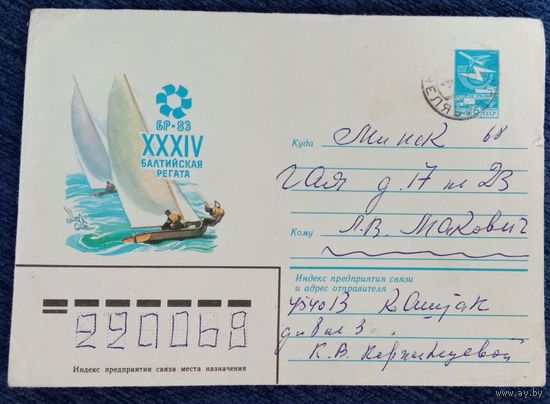 БР·83
XXXIV
БАЛТИЙСКАЯ
РЕГАТА
ПОЧТА СССР
ЧЕЛЯБ
Куда Минск 68
Гая д. 17 кв 23
Кому Л.В. Макович
Индекс предприятия связи
и адрес отправителя
454013
К. В.
220068
Индекс предприятия связи места назначения
www.ay.by